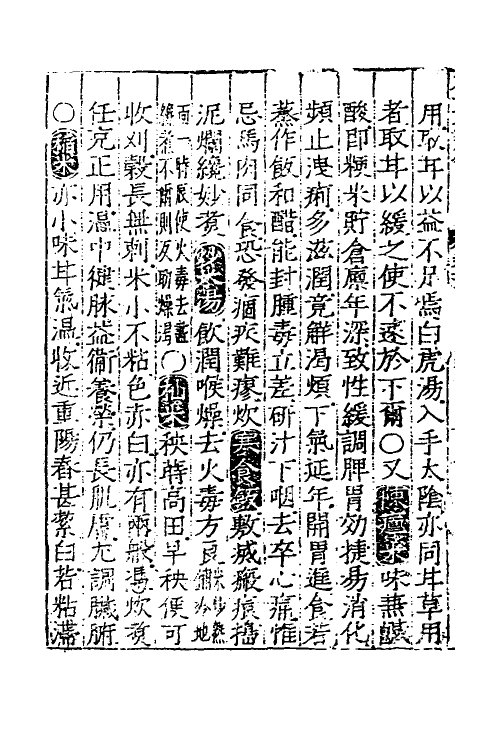 用取甘以益不足焉白虎湯入手太陰亦同甘草用
者取甘以緩之使不速於下爾○又陳廩米味兼鹹
酸即粳米貯倉廩年深致性緩調脾胃効捷易消化
頻止洩痢多滋潤竟解渴煩下氣延年開胃進食若
蒸作飯和醋能封腫毒立差研汁下咽去卒心痛惟
忌馬肉同食恐發痼疾難瘳炊寒食飯敷滅瘢痕擣
泥爛纔妙煮炒米湯飲潤喉燥去火毒方良
雨一時辰使火毒去盡○秈米秧蒔高田早秧便可
收刈穀長無刺米小不粘色亦白亦有兩般憑炊煮
任充正用溫中健脉益衛養榮仍長肌膚尤調臟腑
○稻米亦小味甘氣溫收近重陽春甚潔白若粘滯